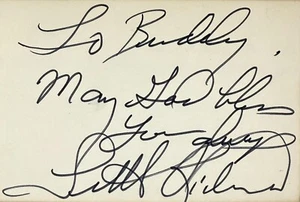 To Buddy,
May God bless
You always
Little Richard